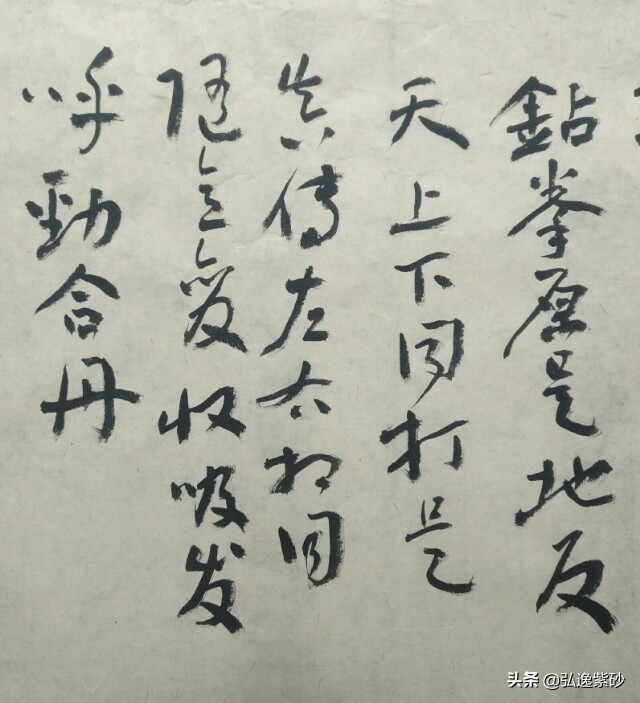 鉆拳原是地反
天上下同打是
真傳左右相同
随意变收吸发
呼勁合丹
头条 @弘逸紫砂